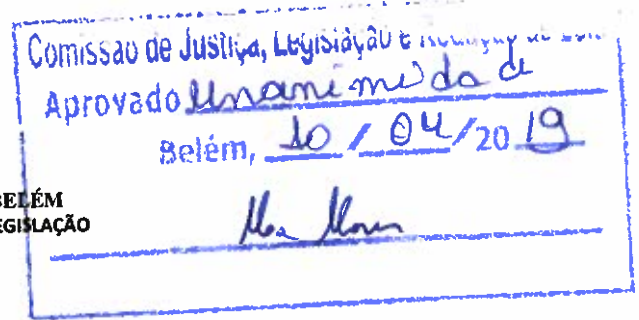 Comissão de Justiça, Legislação e
Aprovado Unanimidade
Belém, 10 / 04 / 20 19
BELÉM
EGISLAÇÃO